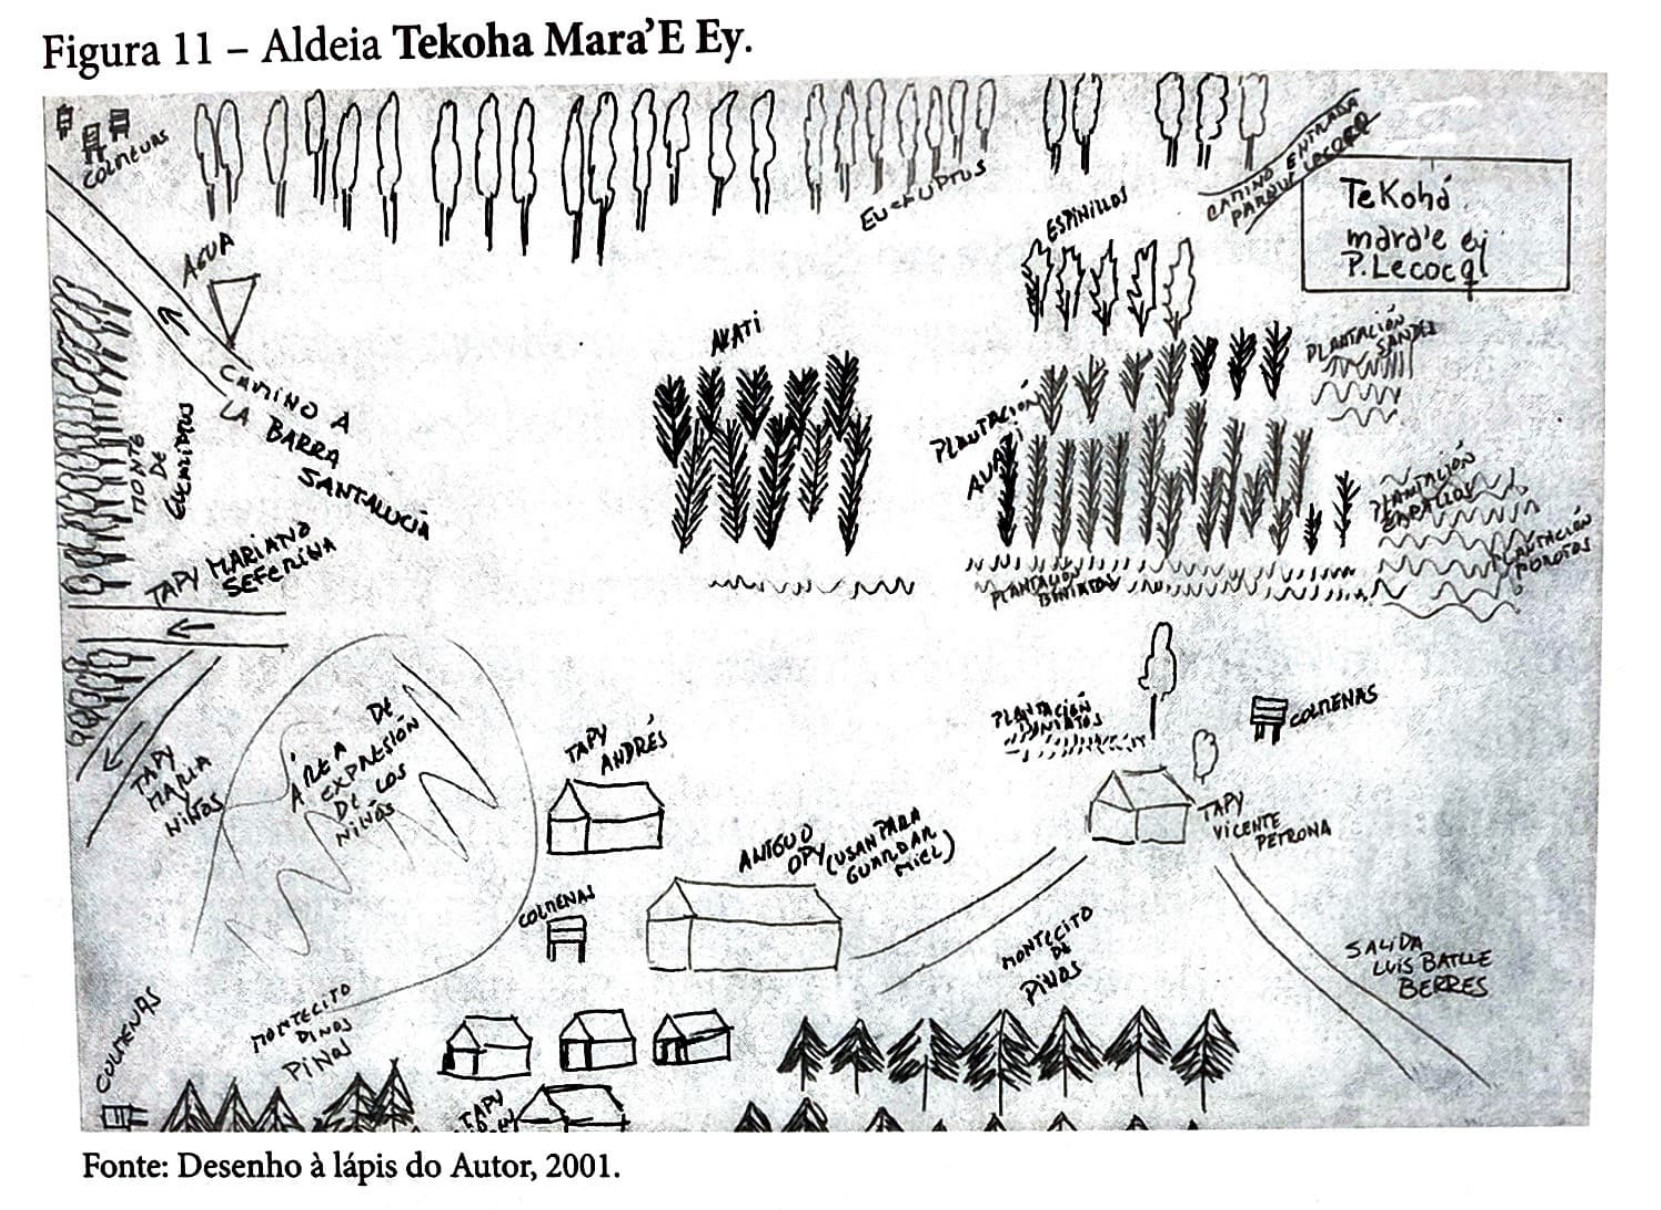 Figura 11 – Aldeia Tekoha Mara'E Ey.
COLMENAS
EUCALIPTUS
CAMINO ENTRADA
PARQUE LECOCQ
Tekohá
mara'e ey
P. Lecocq
ESPINILLOS
AGUA
AVATI
PLANTACIÓN
SANDÍA
CAMINO A
LA BARRA
SANTALUCÍA
MONTE
DE
EUCALIPTUS
PLANTACIÓN
AVATI
PLANTACIÓN
ZAPALLOS
PLANTACIÓN
POROTOS
PLANTACIÓN
BONIATOS
TAPY MARIANO
SEFERINA
TAPY
MARIA
Y
NIÑOS
ÁREA DE
EXPRESIÓN
DE LOS
NIÑOS
TAPY
ANDRÉS
PLANTACIÓN
BONIATOS
COLMENAS
TAPY
VICENTE
PETRONA
ANTIGUO
OPY (USAN PARA
GUARDAR
MIEL)
COLMENAS
MONTECITO
DE
PINOS
SALIDA
LUIS BATLLE
BERRES
COLMENAS
MONTECITO
PINOS
TAPY
Fonte: Desenho à lápis do Autor, 2001.